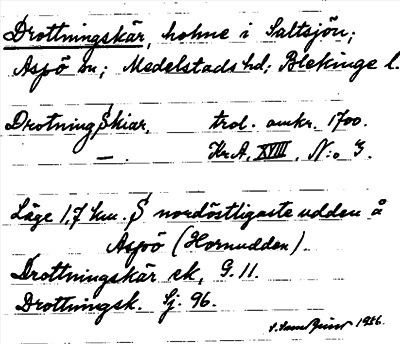 Drottningskär, holme i Saltsjön;
Aspö sn; Medelstads hd; Blekinge l.
DrotningSkiär. trol. omkr. 1700.
— . Kr.A. XVIII, N:o 3.
Läge 1,7 km. S nordöstligaste udden å
Aspö (Hornudden).
Drottningskär ek, G. 11.
Drottningsk. Sj. 96.
1926.